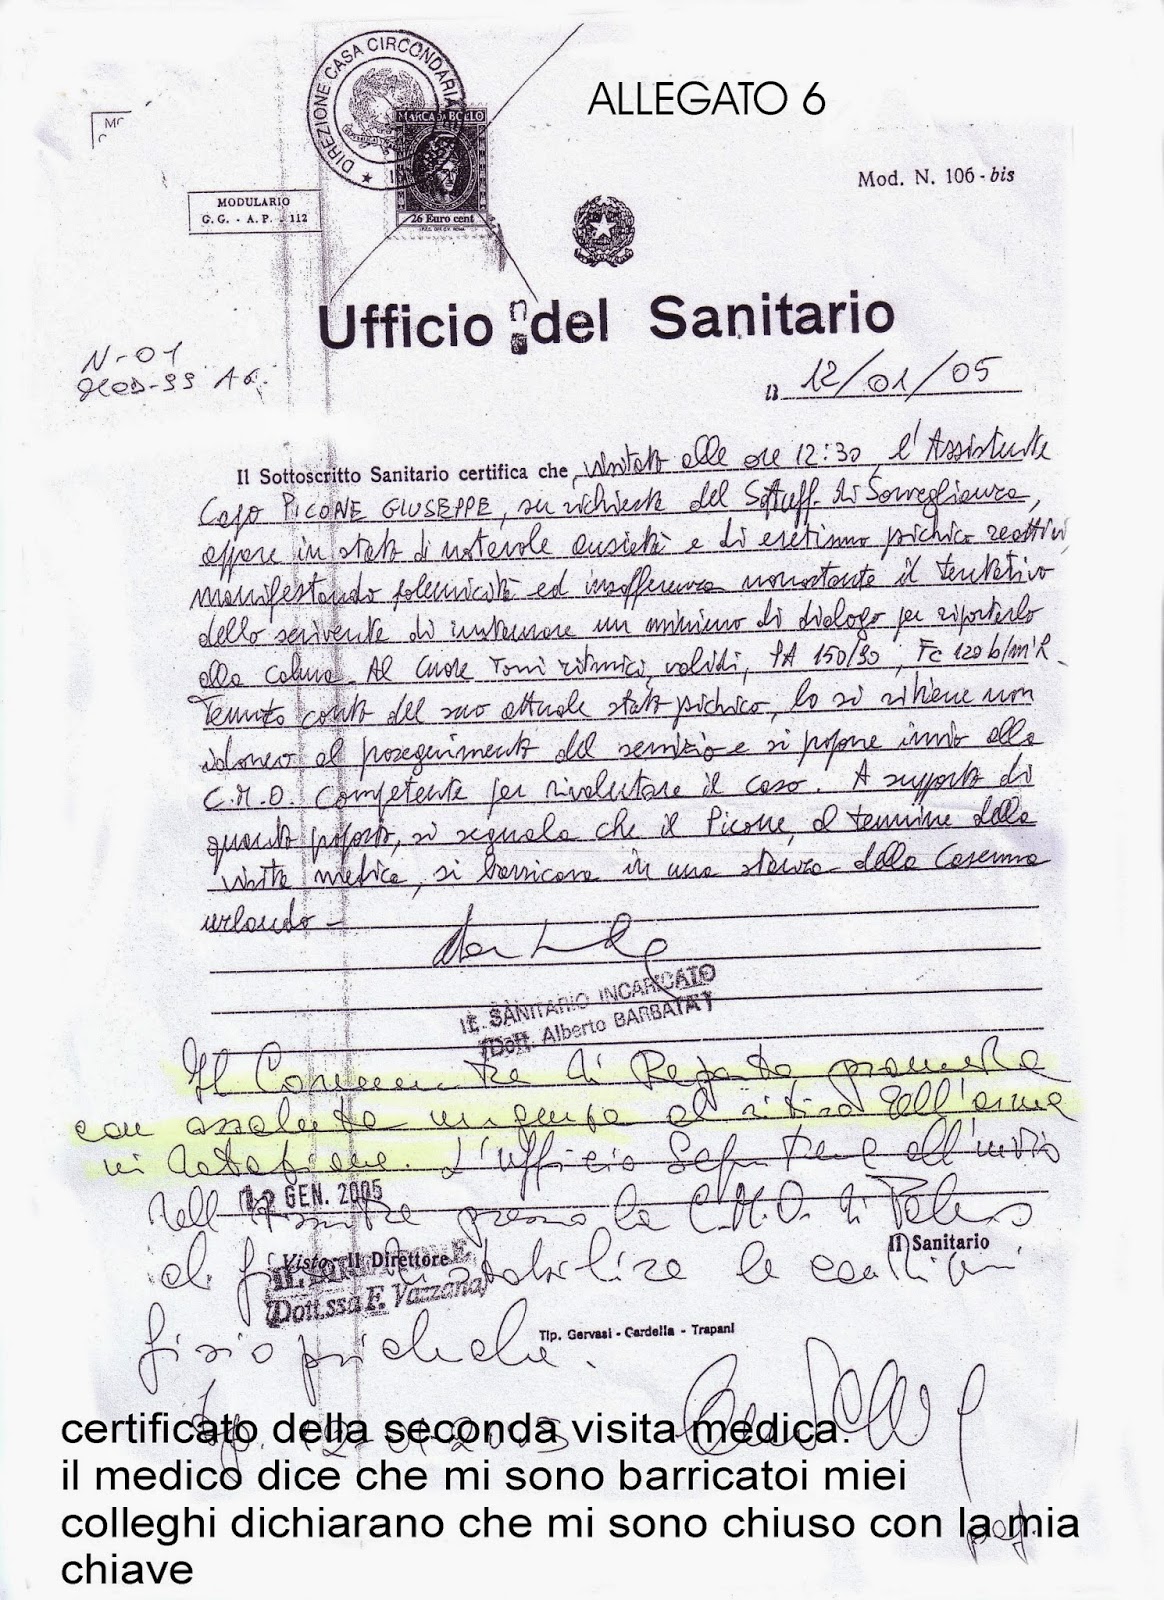 DIREZIONE CASA CIRCONDARIA
ALLEGATO 6
MARCA DA BOLLO
26 Euro cent
Mod. N. 106 - bis
MODULARIO
G. G. - A. P. - 112
Ufficio del Sanitario
N-01
12/01/05
Il Sottoscritto Sanitario certifica che, visitato alle ore 12:30, l'Assistente
Capo PICONE GIUSEPPE, su richiesta del di Sorveglianza,
appare in stato di notevole ansietà e di eretismo psichico reattivi,
manifestando polemicità ed insofferenza nonostante il tentativo
dello scrivente di instaurare un minimo di dialogo per riportarlo
alla calma. Al Cuore Toni ritmici, validi, PA 150/90, Fc 120 b/m'R.
Tenuto conto del suo attuale stato psichico, lo si ritiene non
idoneo al proseguimento del servizio e si propone invio alla
C.M.O. Competente per rivalutare il caso. A supporto di
quanto proposto, si segnala che il Picone, al termine della
visita medica, si barricava in una stanza della Caserma
urlando -
IL SANITARIO INCARICATO
(Dott. Alberto BARBATA)
Il Comandante di Reparto, provveda
con assoluta urgenza al ritiro dell'arma
in dotazione. L'ufficio all'invio
12 GEN. 2005
dell' presso la C.M.O. di Palermo
Il Sanitario
Visto: Il Direttore
al stabilizza le condizioni
(Dott.ssa F. Vazzana)
Tip. Gervasi - Cardella - Trapani
fisio psichiche.
12-01-2005
certificato della seconda visita medica.
il medico dice che mi sono barricatoi miei
colleghi dichiarano che mi sono chiuso con la mia
chiave